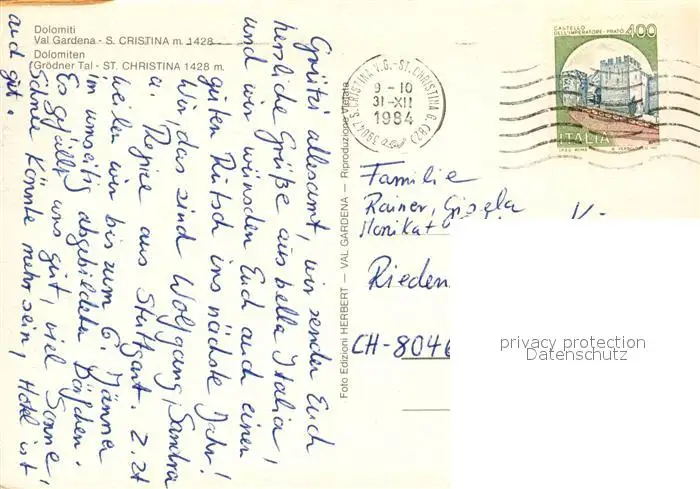 Dolomiti
Val Gardena - S. CRISTINA m. 1428
Dolomiten
Grödner Tal - ST. CHRISTINA 1428 m.
Grützi allesamt, wir senden Euch
herzliche Grüße aus bella Italia,
und wir wünschen Euch auch einen
guten Rutsch ins nächste Jahr!
Wir, das sind Wolfgang, Sandra
u. Regine aus Stuttgart. Z.Zt
weilen wir bis zum 6. Jänner
im umseitig abgebildeten Dörfchen.
Es gfällt uns gut, viel Sonne,
Schnee könnte mehr sein, Hotel ist
auch gut.
Foto Edizioni HERBERT — VAL GARDENA — Riproduzione Vietata
39047 S.CRISTINA V.G.-ST.CHRISTINA G. (BZ)
9-10
31-XII
1984
CASTELLO
DELL'IMPERATORE-PRATO
400
ITALIA
Familie
Rainer, Gisela
Monika
Rieden
CH-8046
privacy protection
Datenschutz